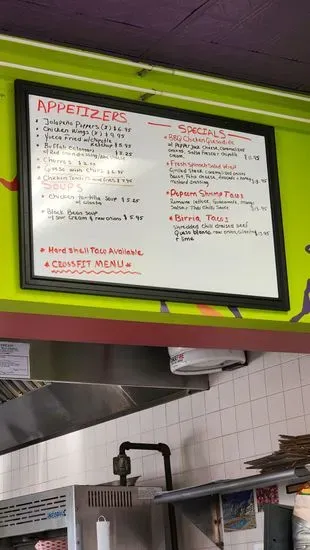 APPETIZERS
Jalapeño Poppers (8) $6.95
Chicken Wings (8) $9.95
Yucca Fried w/chipotle
Ketchup $5.95
Buffalo
w/ $7.25
Churros $2.00
Queso with Chips $6.95
Chicken $7.95
SOUPS
Chicken tortilla soup $5.25
Black Bean soup
w/ sour cream & raw onions $5.95
Hard Shell Taco Available
CROSSFIT MENU
SPECIALS
BBQ Chicken Quesadilla
w/ Pepper jack cheese, caramelized
onions, salsa fresca + chipotle
cream
Fresh Spinach Salad Wrap
Grilled steak, caramelized onions
cheese, avocado + honey
mustard dressing
Popcorn Shrimp Tacos
Romaine lettuce, Guacamole, mango
Salsa + Thai Chili Sauce
Birria Tacos
Shredded chili braised beef
Queso blanco, raw onion, cilantro
+ lime